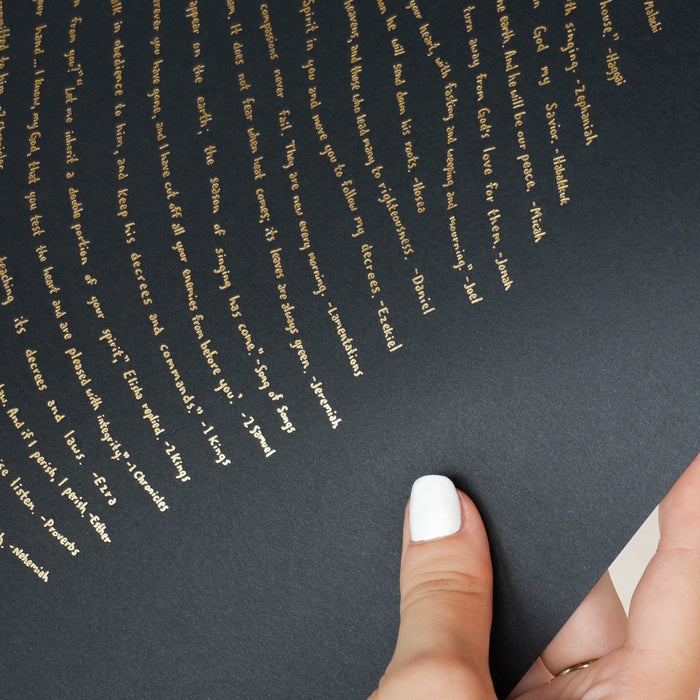 Malachi
house." -Haggai
th singing. -Zephaniah
n God my Savior. -Habakkuk
the earth. And he will be our peace. -Micah
turn away from God's love for them. -Jonah
your heart, with fasting and weeping and mourning." -Joel
n he will send down his roots. -Hosea
heavens, and those who lead many to righteousness. -Daniel
Spirit in you and move you to follow my decrees. -Ezekiel
compassions never fail. They are new every morning. -Lamentations
n. It does not fear when heat comes; its leaves are always green. -Jeremiah
appear on the earth; the season of singing has come." -Song of Songs
erever you have gone, and I have cut off all your enemies from before you.' -2 Samuel
alk in obedience to him, and keep his decrees and commands." -1 Kings
from you?" "Let me inherit a double portion of your spirit," Elisha replied. -2 Kings
hand... I know, my God, that you test the heart and are pleased with integrity." -1 Chronicles
its decrees and laws. -Ezra
law. And if I perish, I perish. -Esther
se listen. -Proverbs
h. -Nehemiah